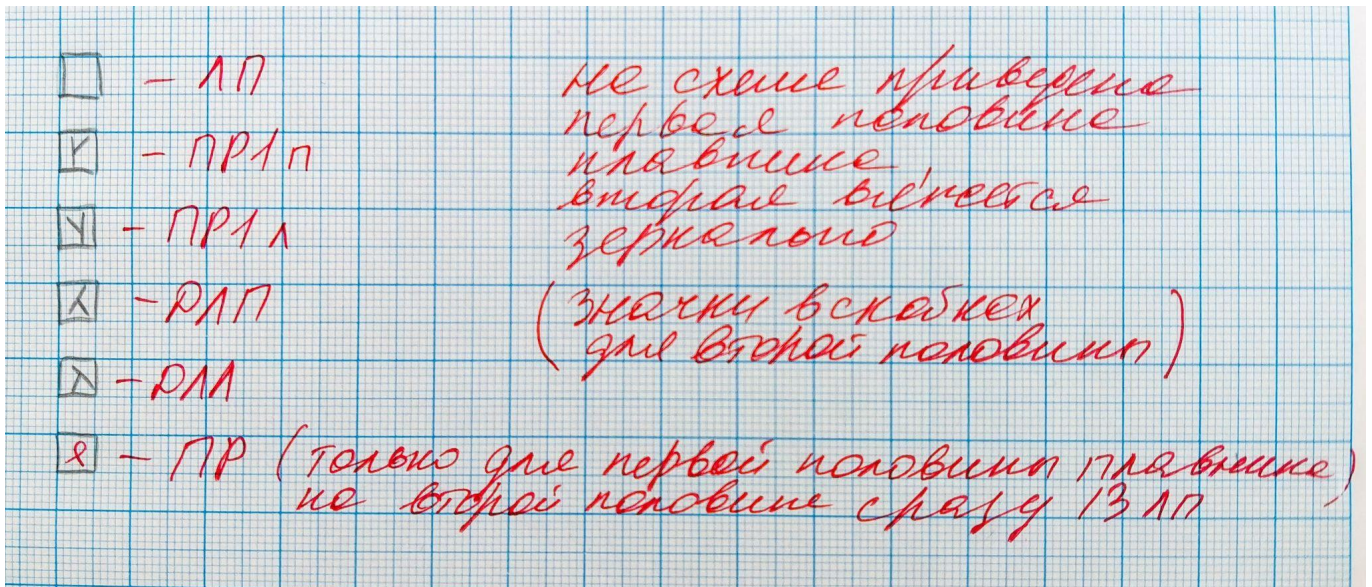 - ЛП
- ПР1п
- ПР1л
- ДЛП
- ДЛЛ
- ПР (только для первой половины плавника)
на второй половине сразу 13 ЛП
на схеме приведена
первая половина
плавника,
вторая вяжется
зеркально
(значки в скобках
для второй половины)